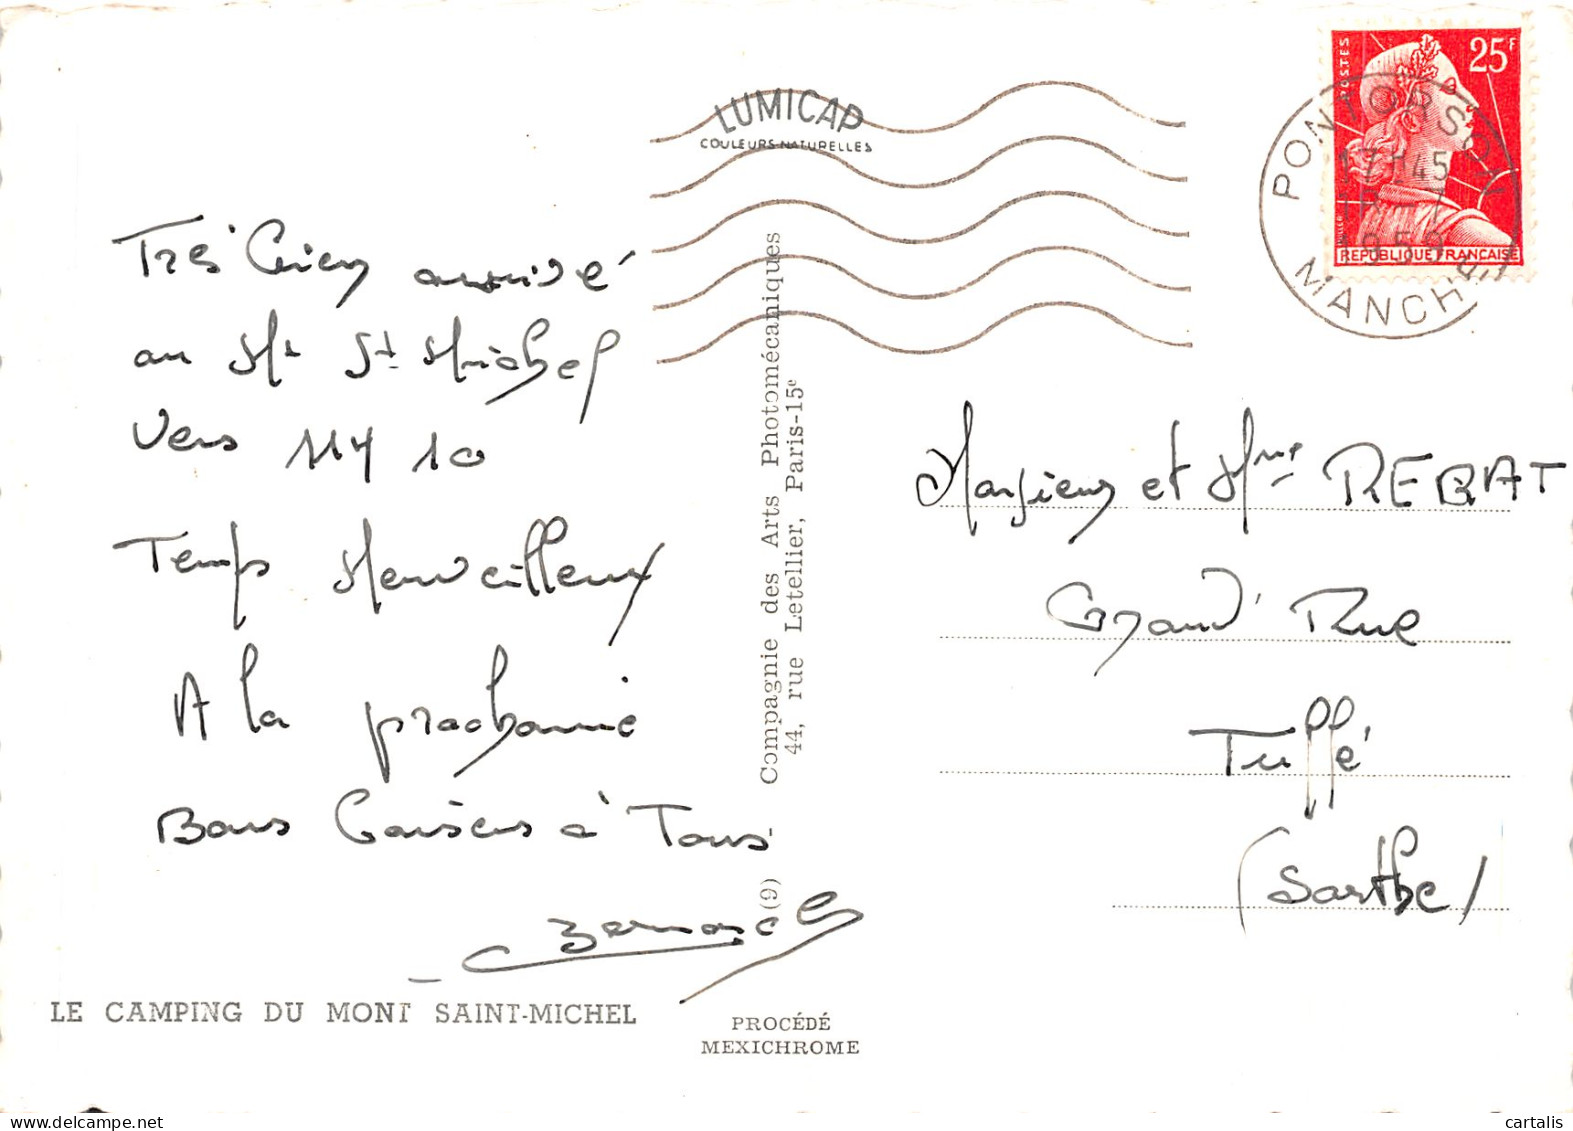 LUMICAP
COULEURS NATURELLES
POSTES
25F
REPUBLIQUE FRANÇAISE
PONTORSON
17H45
1959
MANCHE
Très bien arrivé
au Mt St Michel
Vers 11H 10
Temps Merveilleux
A la prochaine
Bons baisers à Tous
Bernard
Compagnie des Arts Photomécaniques
44, rue Letellier, Paris-15e
(9)
Monsieur et Mme REBRAT
Grand' Rue
Tuffé
(Sarthe)
LE CAMPING DU MONT SAINT-MICHEL
PROCÉDÉ
MEXICHROME
cartalis
www.delcampe.net